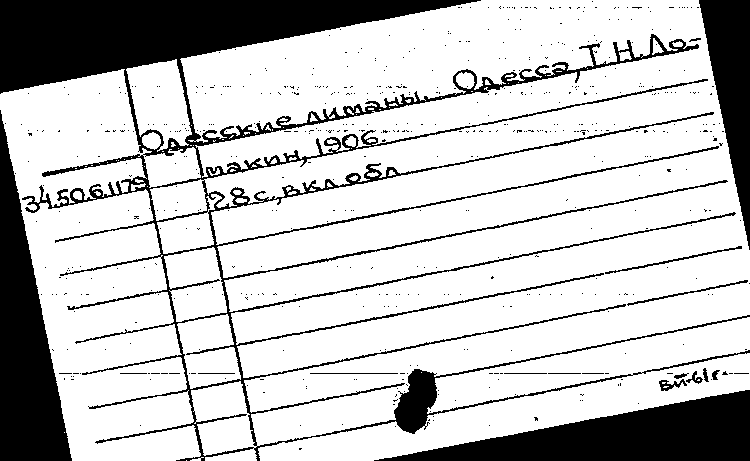 Одесские лиманы. Одесса, Т.Н.Ло-
макин, 1906.
34.50.6.1179
28с., вкл. обл
ВЙ-61г.